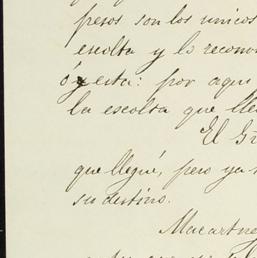 pesos son los unicos
escolta y lo recono
esta: por aqui
la escolta que lle
El Gr
que llegué, pero ya
su destino.
Macartne